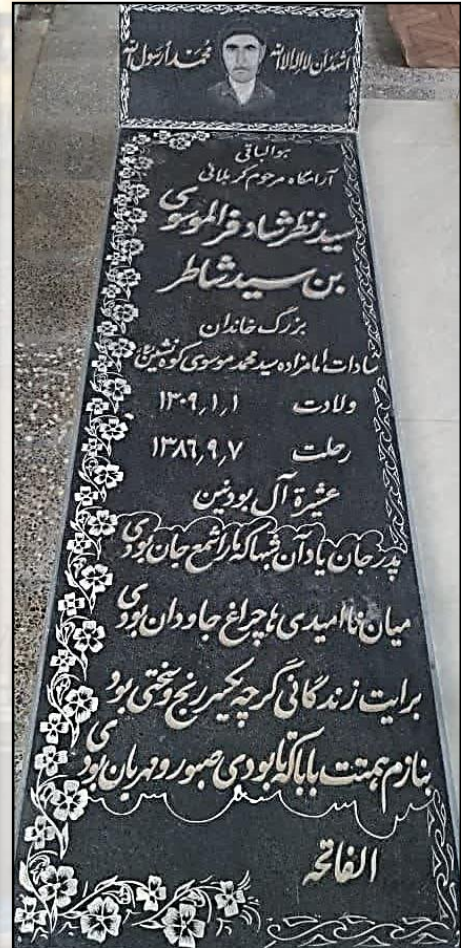 اشهد ان لا اله الا الله
محمداً رسول الله
هوالباقی
آرامگاه مرحوم کربلائی
سید نظر شاد فرالموسوی
بن سید شاطر
بزرگ خاندان
سادات امامزاده سید محمد موسوی کوه نشین
ولادت ۱۳۰۹٫۱٫۱
رحلت ۱۳۸۶٫۹٫۷
عشیرة آل بودنین
پدر جان یاد آن شبها که ما را شمع جان بودی
میان ناامیدی ها چراغ جاودان بودی
برایت زندگانی گرچه یکسر رنج و سختی بود
بنازم همتت بابا که تا بودی صبور و مهربان بودی
الفاتحه